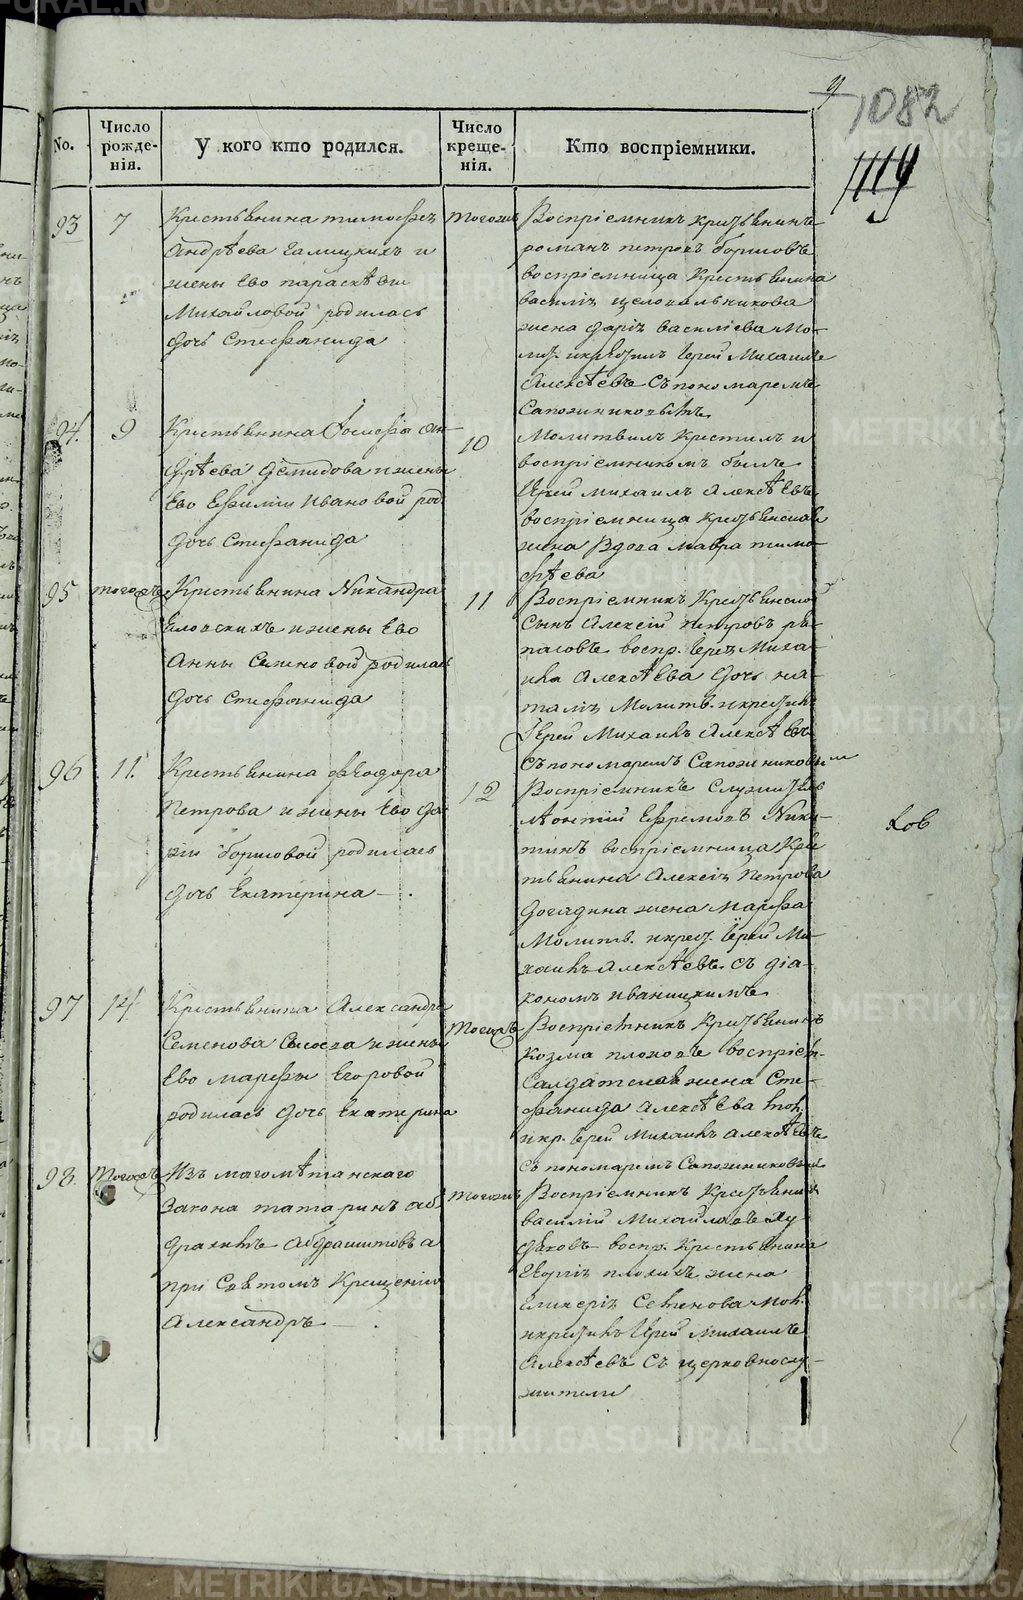 у
1082
1119
No.
Число рожде-нія.
У кого кто родился.
Число креще-нія.
Кто воспріемники.
93
7
Крестьянина тимофея
Андрѣева галицкихъ и
жены Ево параскѣви
Михайловой родилась
дочь Стефанида
тогожъ
Воспріемникъ крестьянинъ
романъ петровъ боршовъ
воспріемница Крестьянина
василія целовальникова
жена дарія василіева мо-
лит. икрестилъ Іерей Михаилъ
Алексѣевъ съ пономаремъ
Сапожниковымъ
94.
9
Крестьянина Іосифа ан-
дрѣева демидова и жены
Ево Ефиміи Ивановой род
дочь Стефанида
10
Молитвилъ Крестилъ и
воспріемникомъ былъ
Іерей михаилъ Алексѣевъ
воспріемница
жена вдова мавра тимо-
фѣева
95
тогожъ
Крестьянина Никандра
и жены Ево
Анны Семеновой родилась
дочь Стефанида
11
Воспріемникъ
сынъ Алексій петровъ
воспр. Іерея Миха-
ила Алексѣева дочь на-
талія Молитв. икрестилъ
Іерей Михаилъ Алексѣевъ
съ пономаремъ Сапожниковымъ
96
11.
Крестьянина Феодора
Петрова и жены Ево да-
ріи боршовой родилась
дочь Екатерина — .
12
Воспріемникъ
лѣонтій Ефремовъ Ники-
тинъ воспріемница Кре
тьянина Алексія Петрова
Догадина жена Марфа
Молитв. икрест. Іерей Ми-
хаилъ Алексѣевъ съ діа-
кономъ иваницкимъ
Ков
97
14.
Крестьянина Александра
Семенова и жены
Ево марфы Егоровой
родилась дочь Екатерина
тогожъ
Воспріемникъ Крестьянинъ
Козма плоховъ воспріем-
Салдатская жена Сте-
фанида Алексѣева мол.
икр. Іерей Михаилъ Алексѣевъ
съ пономаремъ Сапожниковымъ
98.
тогожъ
Изъ магомѣтанскаго
закона татаринъ аб-
драхимъ абдрашитовъ а
при Святомъ Крещеніи
Александръ — .
тогожъ
Воспріемникъ Крестьянинъ
василій михайловъ Ху-
дяковъ воспр. Крестьянина
Георгія плохихъ жена
гликерія Семенова мол.
икрестилъ Іерей михаилъ
Алексѣевъ съ церковнослу-
жители
METRIKI.GASO-URAL.RU